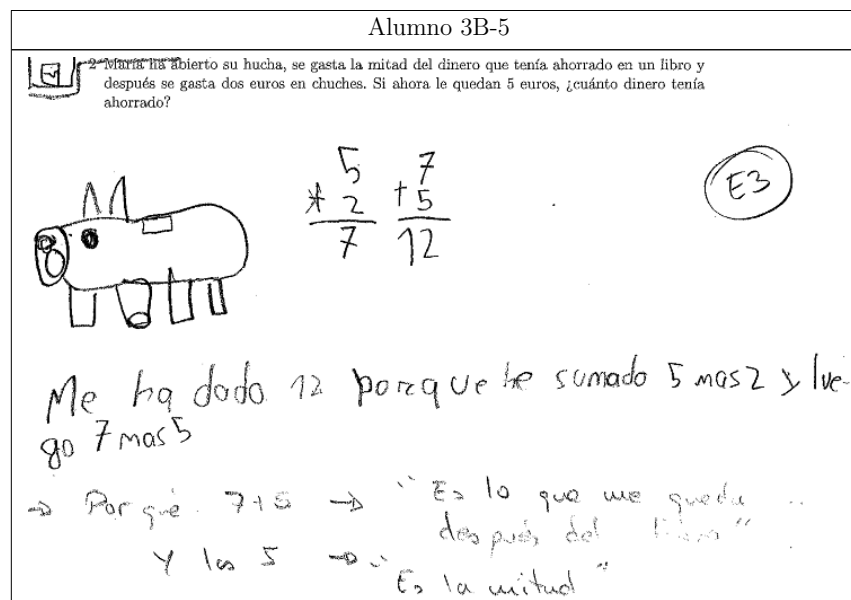 Alumno 3B-5
2 María ha abierto su hucha, se gasta la mitad del dinero que tenía ahorrado en un libro y
después se gasta dos euros en chuches. Si ahora le quedan 5 euros, ¿cuánto dinero tenía
ahorrado?
5 7
* 2 + 5
7 12
E3
Me ha dado 12 porque he sumado 5 mas 2 y lue-
go 7 mas 5
→ Por qué 7+5 → "Es lo que me queda
después del libro"
Y los 5 → "Es la mitud"